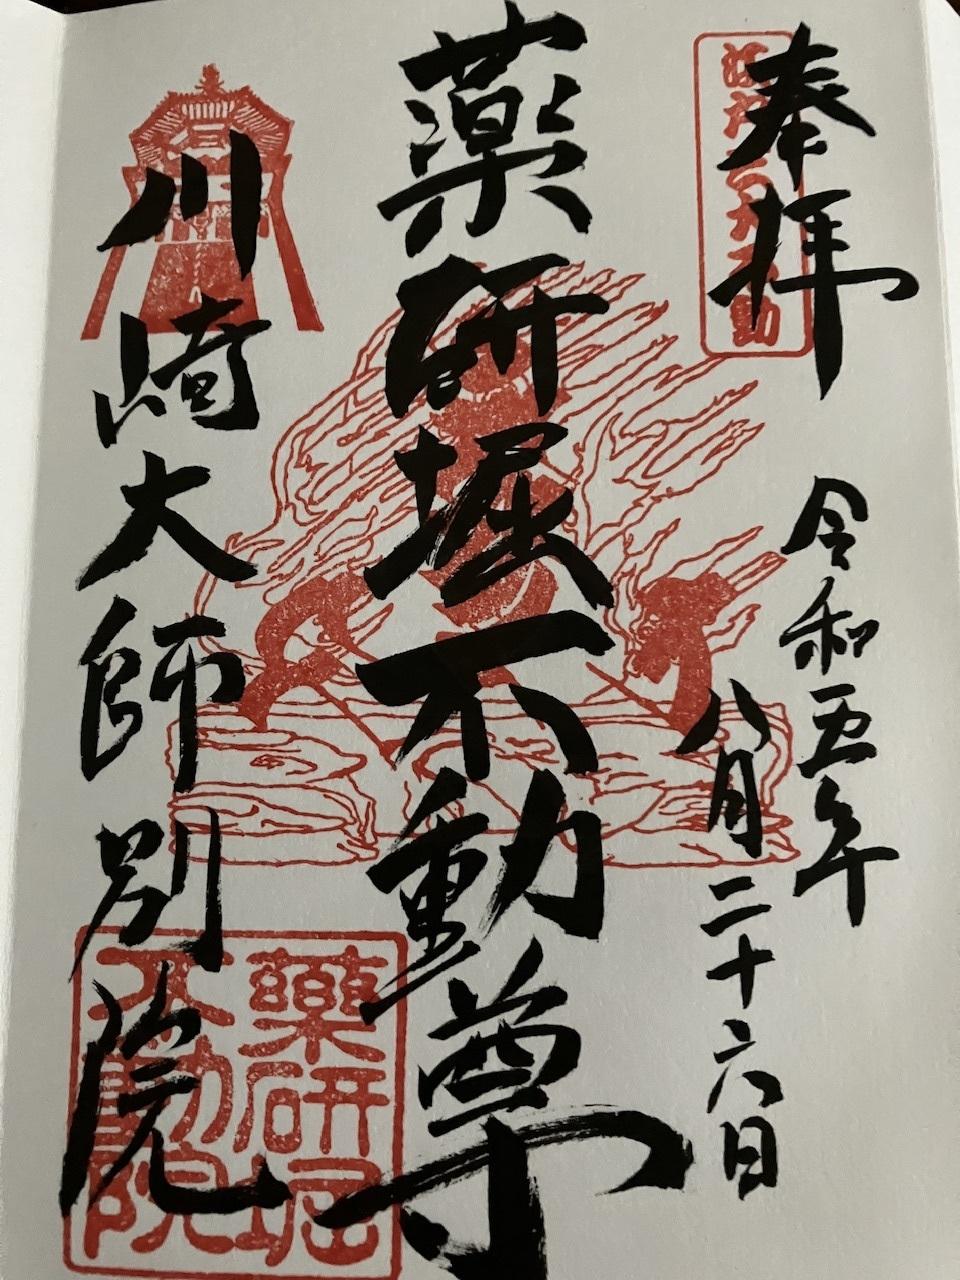 奉拝
江戸三大不動
令和五年
八月二十六日
薬研堀不動尊
川崎大師別院
藥研堀
不動院